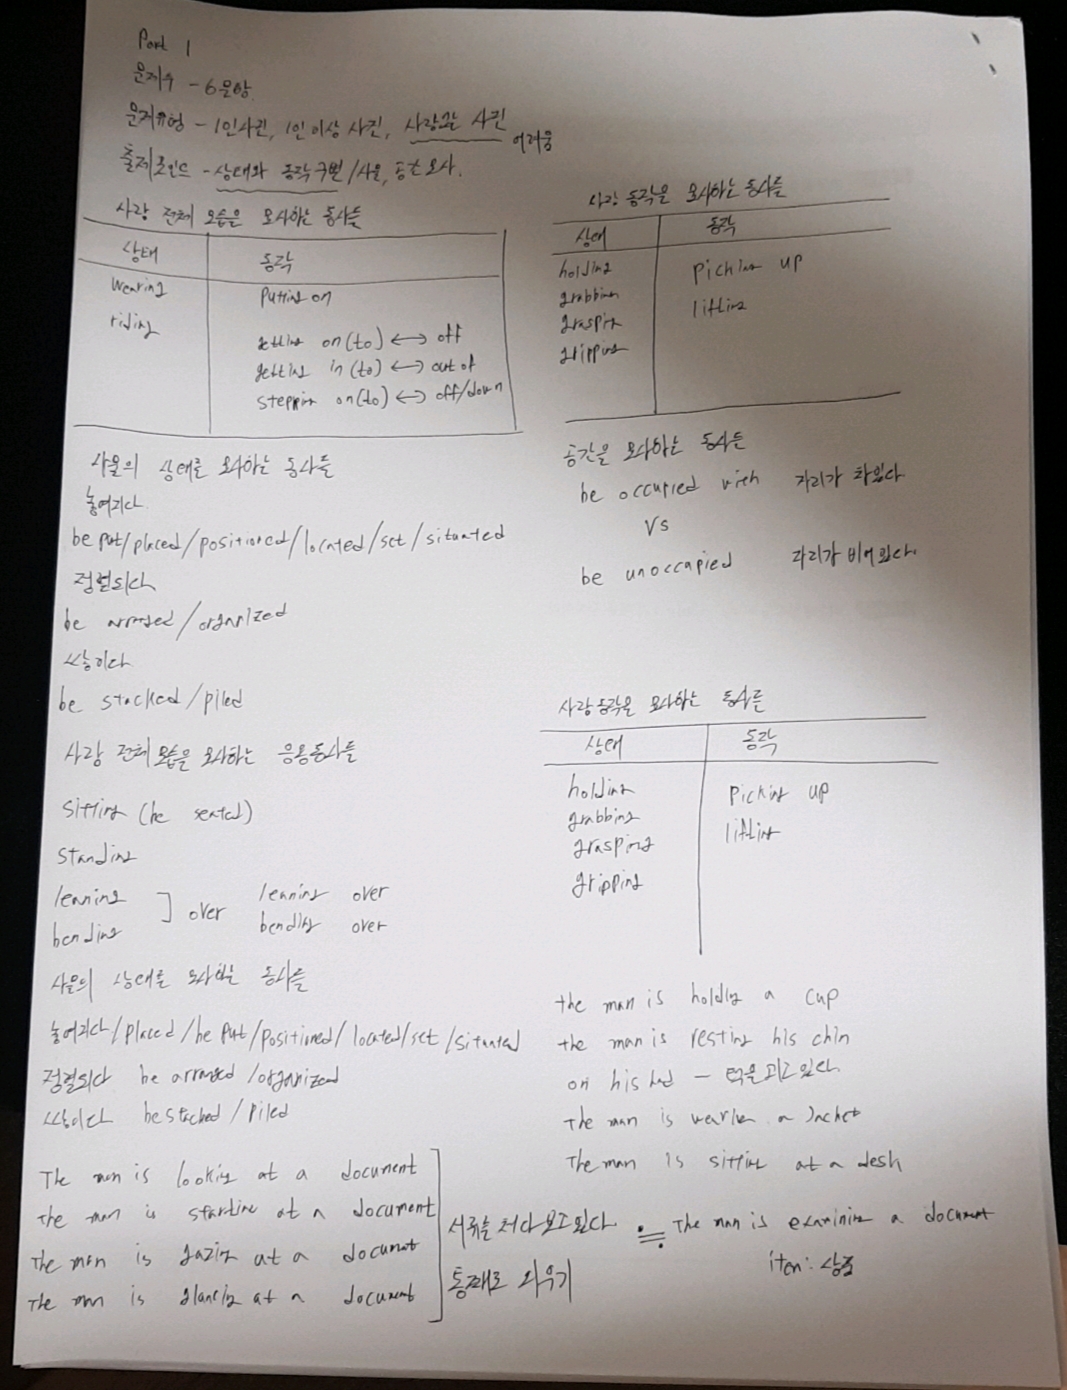 Part 1
문제수 - 6문항
문제유형 - 1인사진, 1인이상 사진, 사람없는 사진 어려움
출제포인트 - 상태와 동작구분/사물, 공간묘사.
사람 전체 모습을 묘사하는 동사들
상태 동작
wearing putting on
riding
getting on(to) ↔ off
getting in(to) ↔ out of
stepping on(to) ↔ off/down
사람 동작을 묘사하는 동사들
상태 동작
holding picking up
grabbing lifting
grasping
gripping
사물의 상태를 묘사하는 동사들
놓여지다
be put/placed/positioned/located/set/situated
정렬되다
be arranged/organized
쌓이다
be stacked/piled
공간을 묘사하는 동사들
be occupied with 자리가 차있다
vs
be unoccupied 자리가 비어있다.
사람 전체 모습을 묘사하는 응용동사들
sitting (be seated)
standing
leaning ] over leaning over
bending bending over
사람 동작을 묘사하는 동사들
상태 동작
holding picking up
grabbing lifting
grasping
gripping
사물의 상태를 묘사하는 동사들
놓여지다/placed/be put/positioned/located/set/situated
정렬되다 be arranged/organized
쌓이다 be stacked/piled
the man is holding a cup
the man is resting his chin
on his - 턱을 괴고 있다.
the man is wearing a Jacket
The man is sitting at a desk
The man is looking at a document
the man is at a document
the man is gazing at a document
the man is glancing at a document
서류를 쳐다 보고 있다 ≒ The man is examining a document
통째로 외우기